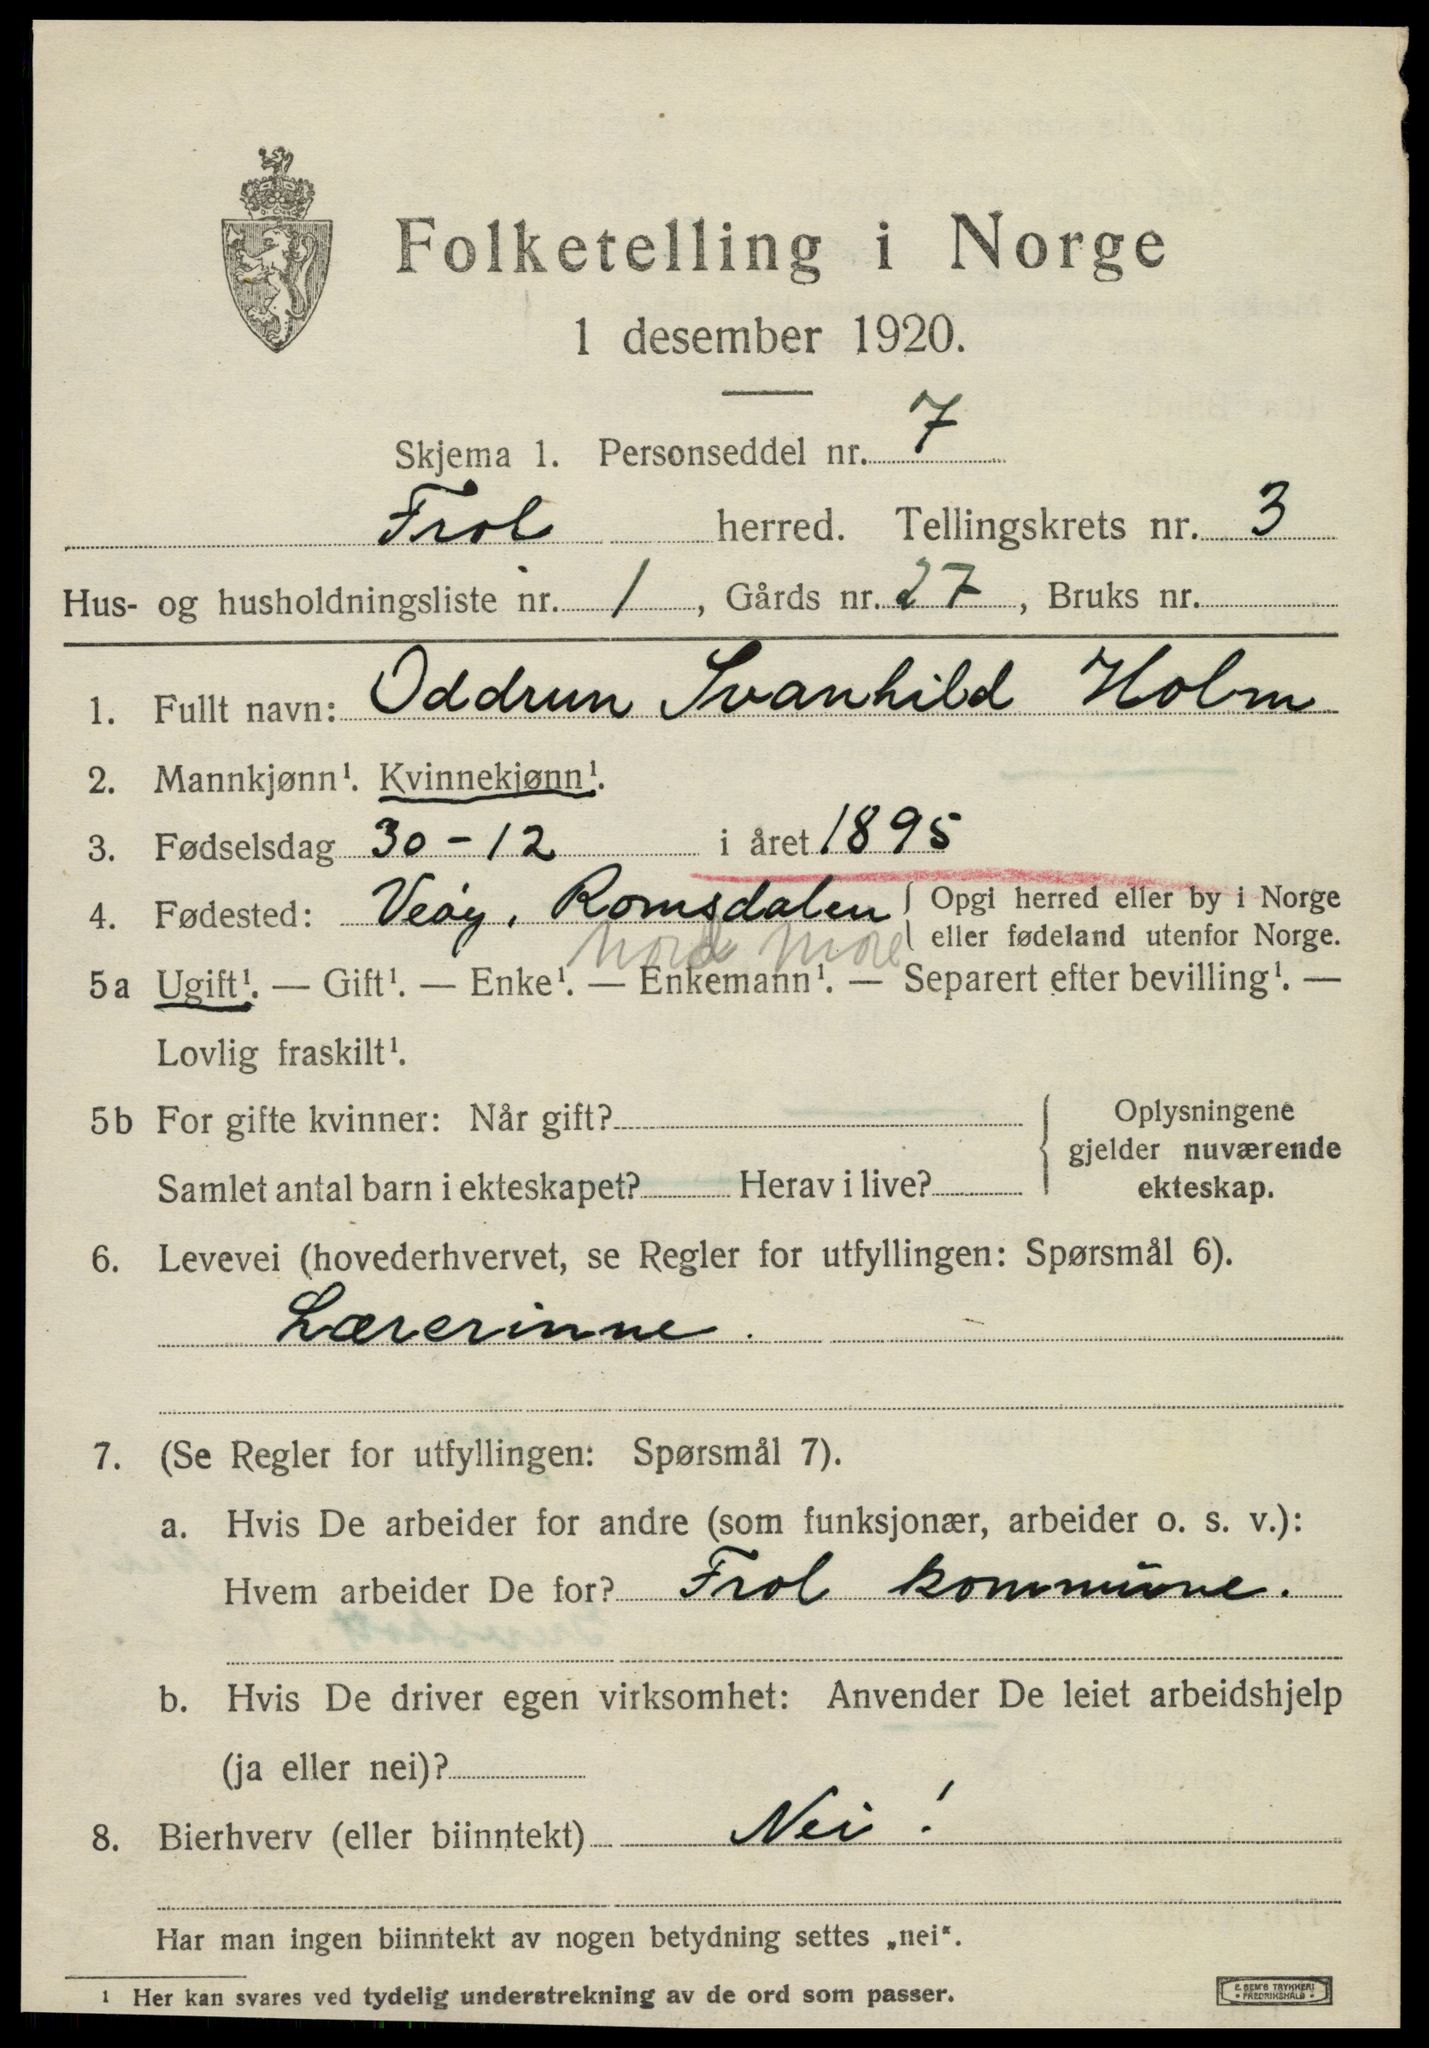 Folketelling i Norge
1 desember 1920.
Skjema 1. Personseddel nr. 7
Frol herred. Tellingskrets nr. 3
Hus- og husholdningsliste nr. 1, Gårds nr. 27, Bruks nr.
1. Fullt navn: Oddrun Svanhild Holm
2. Mannkjønn¹. Kvinnekjønn¹.
3. Fødselsdag 30-12 i året 1895
4. Fødested: Veøy, Romsdalen { Opgi herred eller by i Norge
eller fødeland utenfor Norge.
Nord More
5a Ugift¹. — Gift¹. — Enke¹. — Enkemann¹. — Separert efter bevilling¹. —
Lovlig fraskilt¹.
5b For gifte kvinner: Når gift?
Samlet antal barn i ekteskapet? Herav i live?
Oplysningene
gjelder nuværende
ekteskap.
6. Levevei (hovederhvervet, se Regler for utfyllingen: Spørsmål 6).
Lærerinne.
7. (Se Regler for utfyllingen: Spørsmål 7).
a. Hvis De arbeider for andre (som funksjonær, arbeider o. s. v.):
Hvem arbeider De for? Frol kommune.
b. Hvis De driver egen virksomhet: Anvender De leiet arbeidshjelp
(ja eller nei)?
8. Bierhverv (eller biinntekt) Nei!
Har man ingen biinntekt av nogen betydning settes „nei".
¹ Her kan svares ved tydelig understrekning av de ord som passer.
E. SEM'S TRYKKERI
FREDRIKSHALD